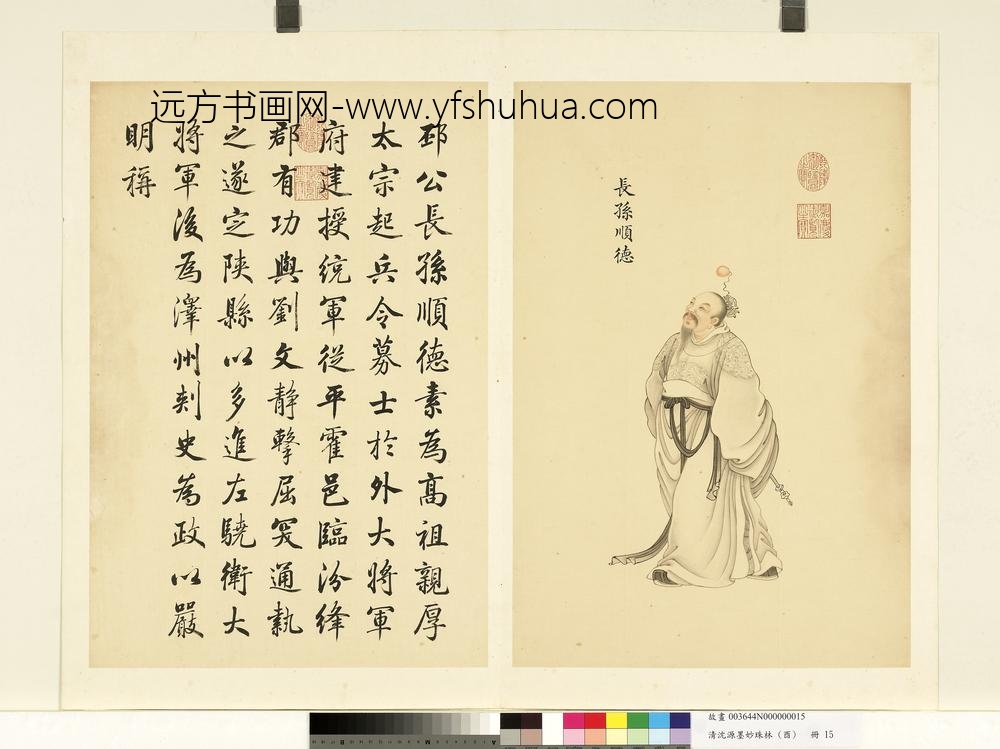 远方书画网-www.yfshuhua.com
長孫順德
邳公長孫順德素為髙祖親厚
太宗起兵令募士於外大將軍
府建授統軍從平霍邑臨汾絳
郡有功與劉文静擊屈突通執
之遂定陕縣以多進左驍衛大
將軍後為澤州刺史為政以嚴
明稱
故畫 003644N000000015
清沈源墨妙珠林（酉） 冊 15